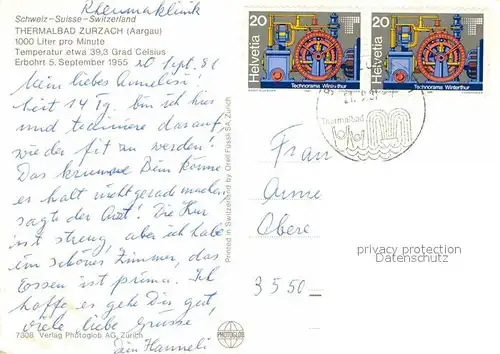 Rheumaklinik
Schweiz - Suisse - Switzerland
THERMALBAD ZURZACH (Aargau)
1000 Liter pro Minute
Temperatur etwa 39,3 Grad Celsius
Erbohrt 5. September 1955
20 Sept. 81
Mein liebes Annelisi!
Seit 14 Tg. bin ich hier
und trainiere darauf,
wieder fit zu werden!
Das krumme Bein könne
er halt nicht gerade machen,
sagte der Arzt! Die Kur
ist streng, aber ich habe
ein schönes Zimmer, das
Essen ist prima. Ich
hoffe es gehe Dir gut,
viele liebe Grüsse
dein Hanneli
7308 Verlag Photoglob AG, Zürich
Printed in Switzerland by Orell Füssli SA, Zürich
PHOTOGLOB
20
Helvetia
Technorama Winterthur
20
Helvetia
Technorama Winterthur
Thermalbad
Frau
Anne
Obere
3550
privacy protection
Datenschutz